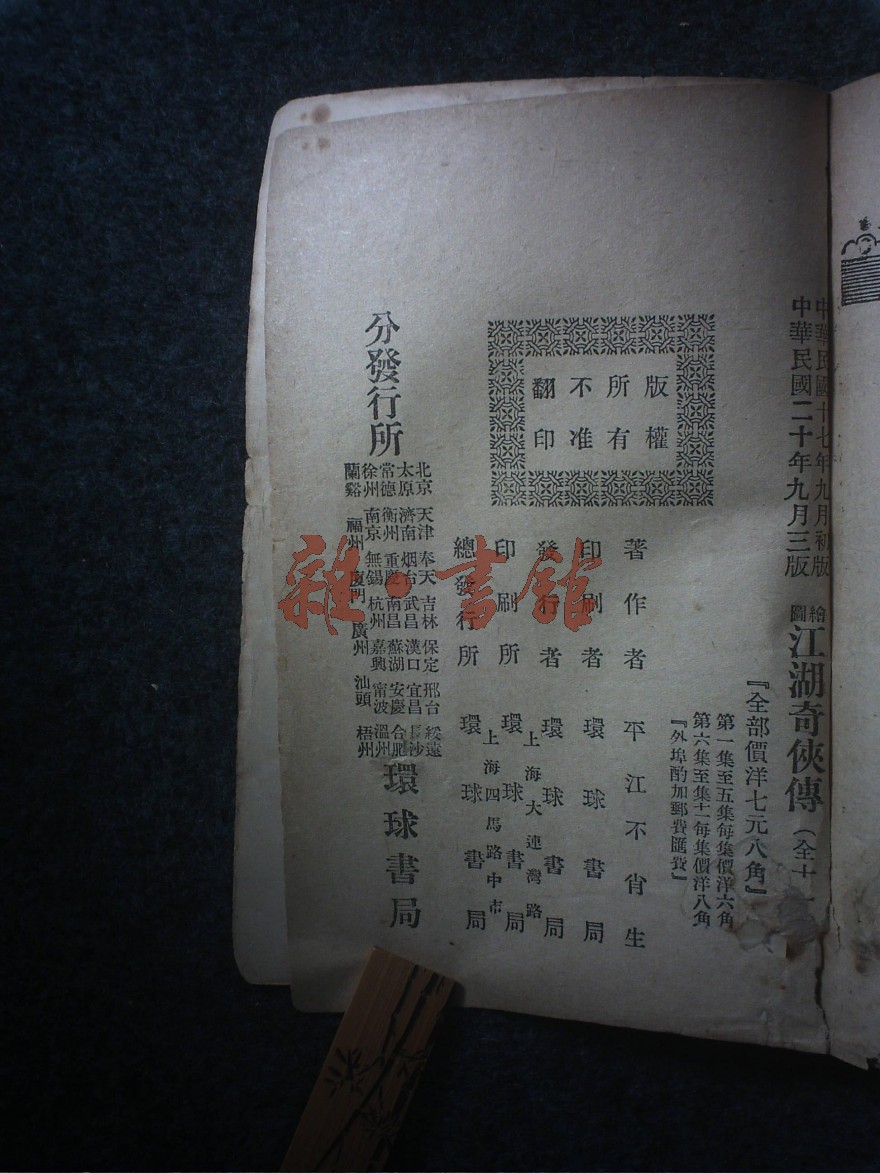 中華民國十七年九月初版
中華民國二十年九月三版
繪圖江湖奇俠傳（全十一
『全部價洋七元八角』
第一集至五集每集價洋六角
第六集至集十一每集價洋八角
『外埠酌加郵費匯費』
版權
所有
不准
翻印
著作者 平江不肖生
印刷者 環球書局
發行者 環球書局
上海大連灣路
印刷所 環球書局
上海四馬路中市
總發行所 環球書局
分發行所
北京 天津 奉天 吉林 保定 邢台 綏遠
太原 濟南 烟台 武昌 漢口 宜昌 長沙
常德 衡州 重慶 南昌 蕪湖 安慶 合肥
徐州 南京 無錫 杭州 嘉興 甯波 溫州
蘭谿 福州 廈門 廣州 汕頭 梧州
環球書局
雜·書館